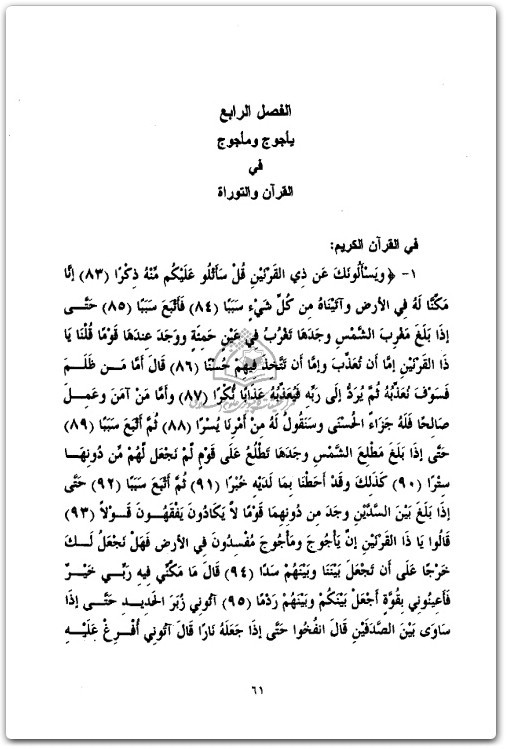 الفصل الرابع
يأجوج ومأجوج
في
القرآن والتوراة
في القرآن الكريم:
١- ﴿ ويَسْأَلُونَكَ عَن ذِي القَرْنَيْنِ قُلْ سَأَتْلُو عَلَيْكُم مِّنْهُ ذِكْرًا (٨٣) إنَّا
مَكَّنَّا لَهُ فِي الأَرضِ وآتَيْنَاهُ مِن كُلِّ شَيْءٍ سَبَبًا (٨٤) فَأَتْبَعَ سَبَبًا (٨٥) حَتَّى
إذَا بَلَغَ مَغْرِبَ الشَّمْسِ وجَدَهَا تَغْرُبُ فِي عَيْنٍ حَمِئَةٍ ووَجَدَ عِندَهَا قَوْمًا قُلْنَا يَا
ذَا القَرْنَيْنِ إمَّا أَن تُعَذِّبَ وإمَّا أَن تَتَّخِذَ فِيهِمْ حُسْنًا (٨٦) قَالَ أَمَّا مَن ظَلَمَ
فَسَوْفَ نُعَذِّبُهُ ثُمَّ يُرَدُّ إلَى رَبِّهِ فَيُعَذِّبُهُ عَذَابًا نُّكْرًا (٨٧) وأَمَّا مَنْ آمَنَ وعَمِلَ
صَالِحًا فَلَهُ جَزَاءً الحُسْنَى وسَنَقُولُ لَهُ مِنْ أَمْرِنَا يُسْرًا (٨٨) ثُمَّ أَتْبَعَ سَبَبًا (٨٩)
حَتَّى إذَا بَلَغَ مَطْلِعَ الشَّمْسِ وجَدَهَا تَطْلُعُ عَلَى قَوْمٍ لَّمْ نَجْعَل لَّهُم مِّن دُونِهَا
سِتْرًا (٩٠) كَذَلِكَ وقَدْ أَحَطْنَا بِمَا لَدَيْهِ خُبْرًا (٩١) ثُمَّ أَتْبَعَ سَبَبًا (٩٢) حَتَّى
إذَا بَلَغَ بَيْنَ السَّدَّيْنِ وجَدَ مِن دُونِهِمَا قَوْمًا لاَّ يَكَادُونَ يَفْقَهُونَ قَوْلاً (٩٣)
قَالُوا يَا ذَا القَرْنَيْنِ إنَّ يَأْجُوجَ ومَأْجُوجَ مُفْسِدُونَ فِي الأَرضِ فَهَلْ نَجْعَلُ لَكَ
خَرْجًا عَلَى أَن تَجْعَلَ بَيْنَنَا وبَيْنَهُمْ سَدًا (٩٤) قَالَ مَا مَكَّنِّي فِيهِ رَبِّي خَيْرٌ
فَأَعِينُونِي بِقُوَّةٍ أَجْعَلْ بَيْنَكُمْ وبَيْنَهُمْ رَدْمًا (٩٥) آتُونِي زُبَرَ الحَدِيدِ حَتَّى إذَا
سَاوَى بَيْنَ الصَّدَفَيْنِ قَالَ انفُخُوا حَتَّى إذَا جَعَلَهُ نَارًا قَالَ آتُونِي أُفْرِغْ عَلَيْهِ
٦١